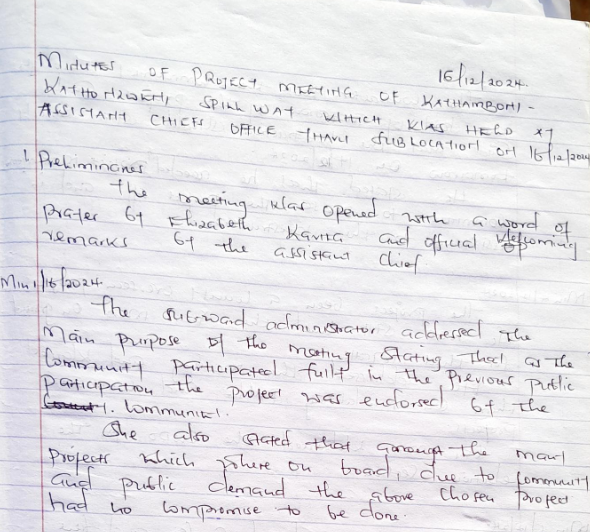 16/12/2024.
MINUTES OF PROJECT MEETING OF KATHAMBONI -
KATHONZWENI, SPILL WAY WHICH WAS HELD AT
ASSISTANT CHIEFS OFFICE SUBLOCATION ON 16/12/2024
1. Preliminaries
The meeting was opened with a word of
Prayer by Elizabeth and official welcoming
remarks by the assistant Chief
Min 1/16/2024.
The administrator addressed the
Main purpose of the meeting stating that as the
Community participated fully in the previous public
participation the project was endorsed by the
Communinl.
She also stated that amongst the many
projects which where on board, due to community
and public demand the above chosen project
had no compromise to be done.